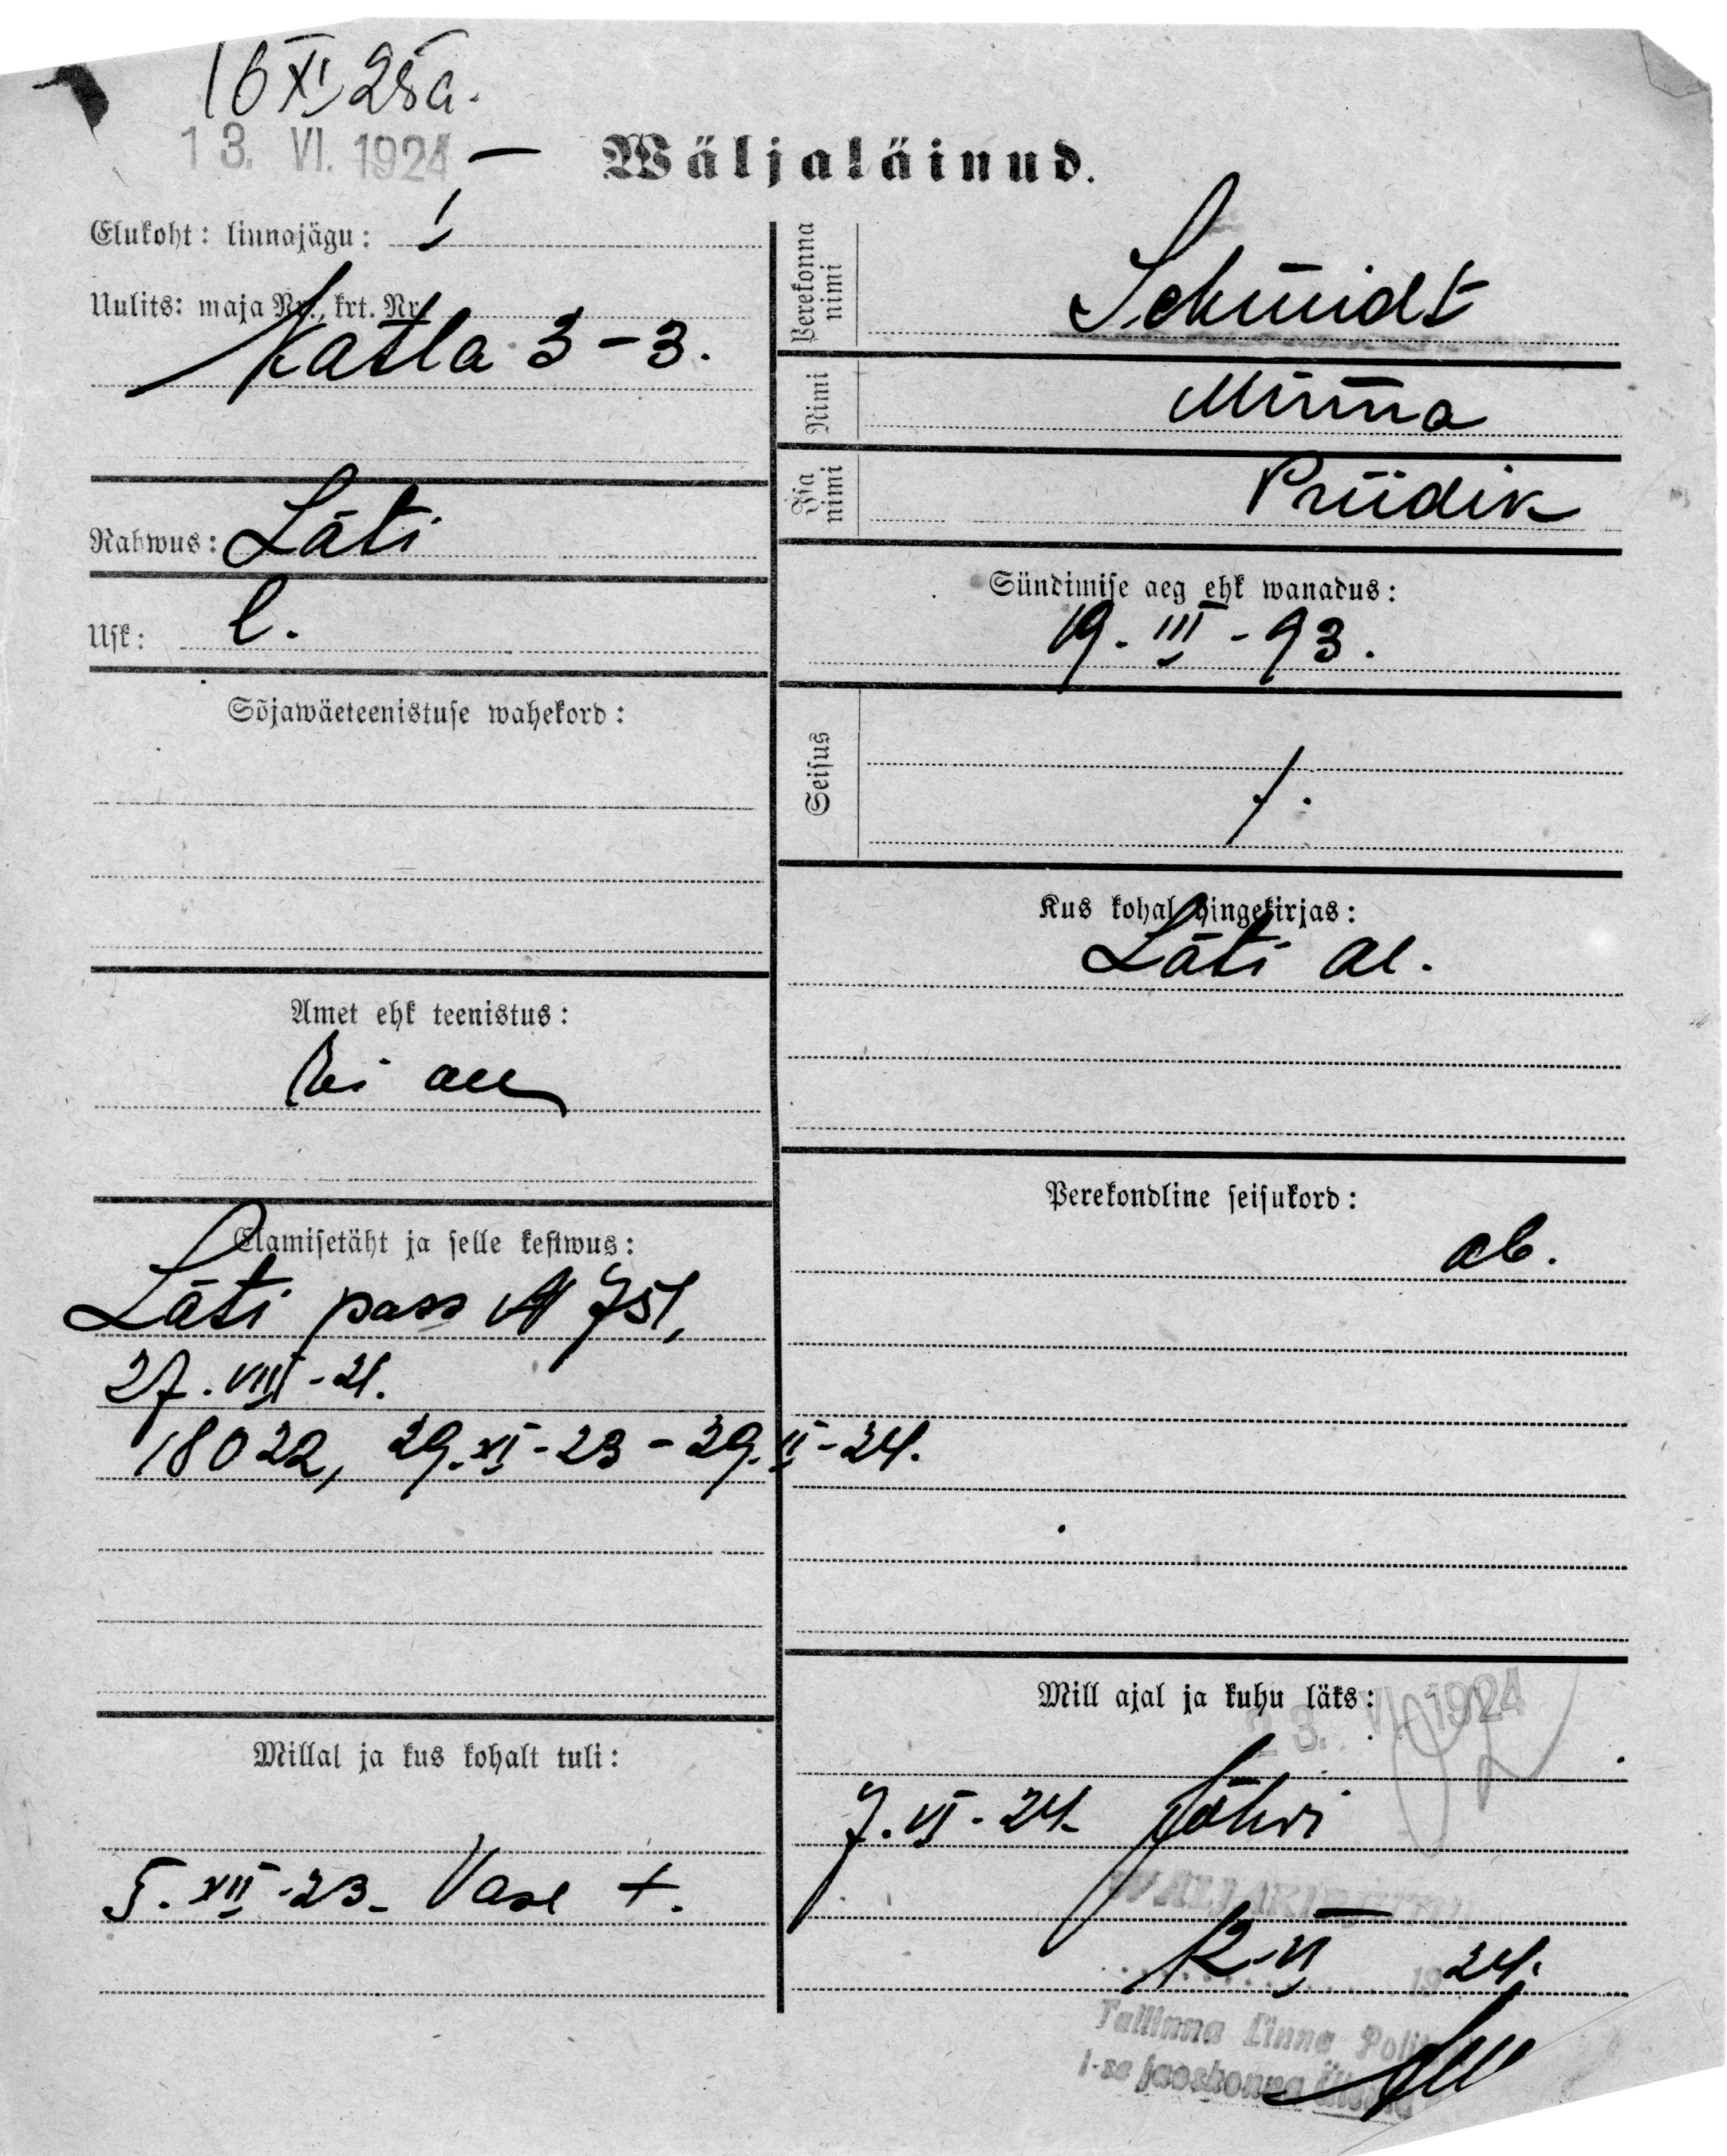 16 XI 25 a.
13. VI. 1924 —
Wäljaläinud.
Elukoht: linnajägu: I
Uulits: maja Nr., krt. Nr.
Katla 3-3.
Rahwus: Läti
Usk: l.
Sõjawäeteenistuse wahekord:
Amet ehk teenistus:
Elamisetäht ja selle kestwus:
Läti pass № 751,
27. VIII-21.
18022, 29.XI-23-29.II-24.
Millal ja kus kohalt tuli:
5. XII-23. Vase
Perekonna nimi
Schmidt
Nimi
Minna
Isa nimi
Priidik
Sündimise aeg ehk wanadus:
19. III-93.
Seisus
Kus kohal hingekirjas:
Läti al.
Perekondline seisukord:
ab.
Mill ajal ja kuhu läks:
23. VI. 1924
7. VI-24. Jõhvi
12 VI 24.
Tallinna Linna
1-se jaoskonna